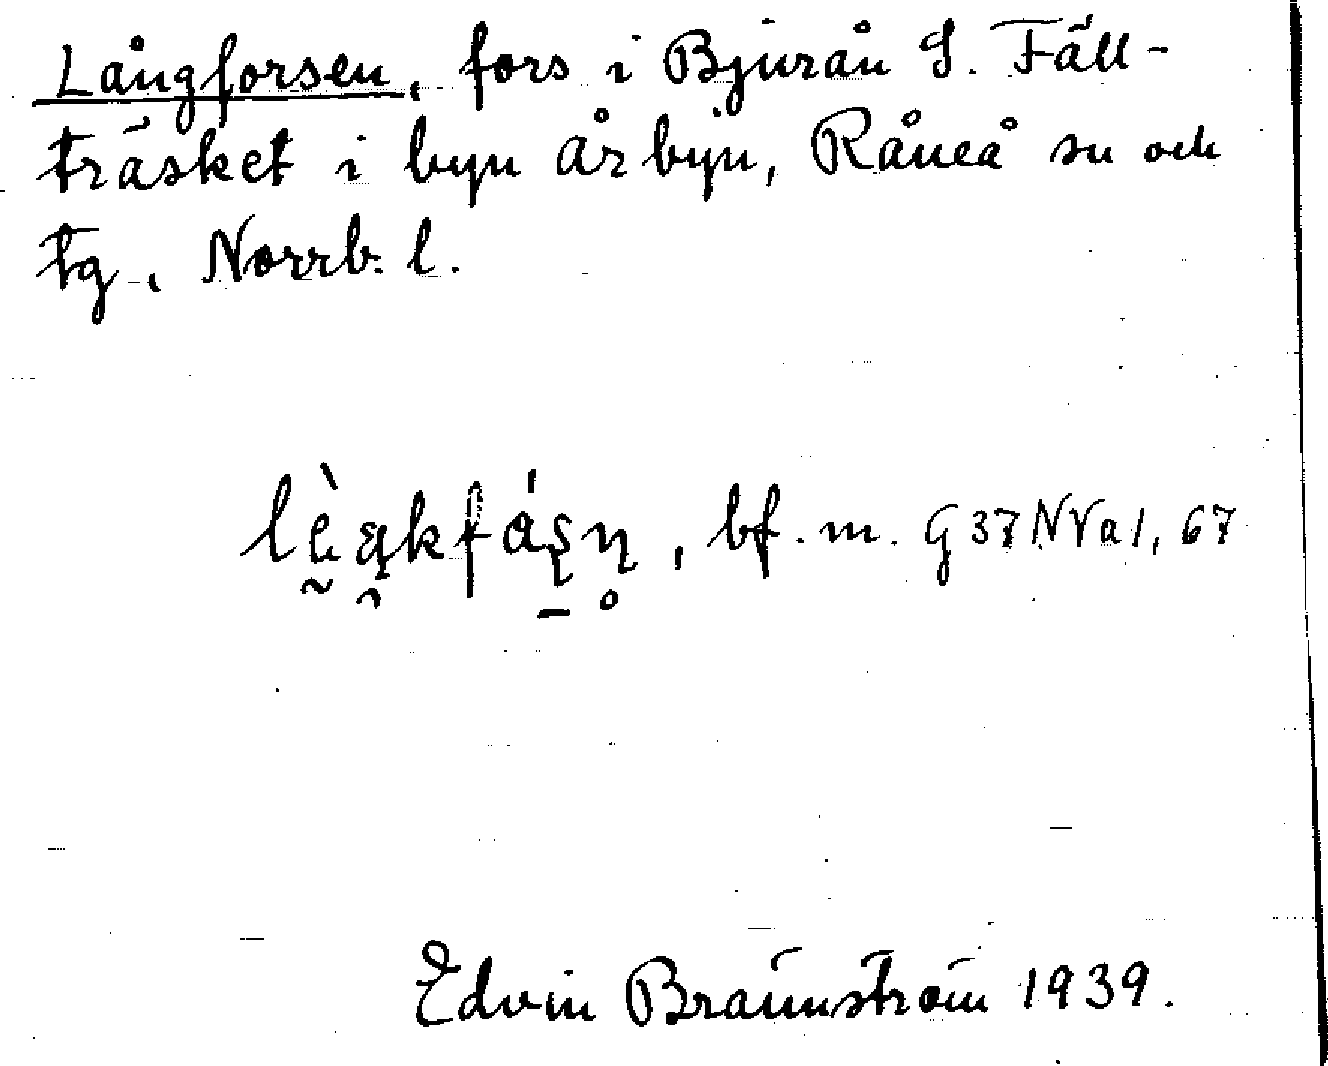 Långforsen, fors i Bjurån S. Fäll-
träsket i byn Årbyn, Råneå sn och
tg., Norrb. l.
bf. m. G37NVa1, 67
Edvin Brännström 1939.